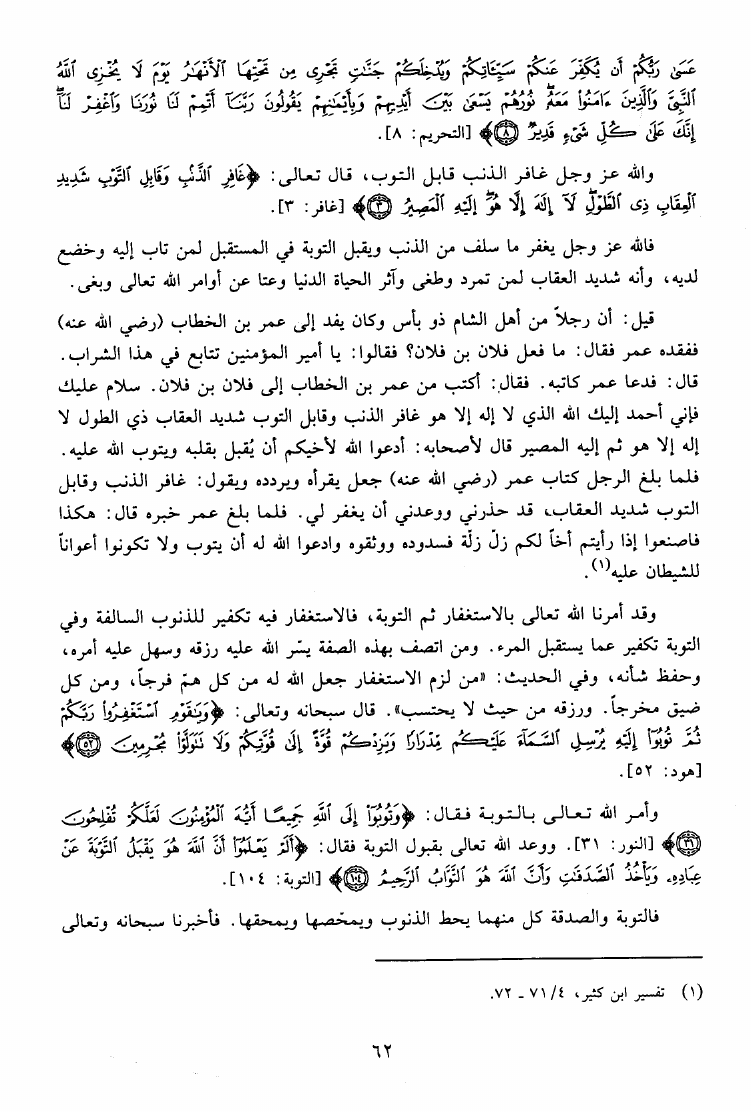 عَسَىٰ رَبُّكُمْ أَن يُكَفِّرَ عَنكُمْ سَيِّـَٔاتِكُمْ وَيُدْخِلَكُمْ جَنَّٰتٍ تَجْرِى مِن تَحْتِهَا ٱلْأَنْهَٰرُ يَوْمَ لَا يُخْزِى ٱللَّهُ
ٱلنَّبِىَّ وَٱلَّذِينَ ءَامَنُوا۟ مَعَهُۥ ۖ نُورُهُمْ يَسْعَىٰ بَيْنَ أَيْدِيهِمْ وَبِأَيْمَٰنِهِمْ يَقُولُونَ رَبَّنَآ أَتْمِمْ لَنَا نُورَنَا وَٱغْفِرْ لَنَآ ۖ
إِنَّكَ عَلَىٰ كُلِّ شَىْءٍ قَدِيرٌ ﴿٨﴾ [التحريم: ٨].
والله عز وجل غافر الذنب قابل التوب، قال تعالى: ﴿غَافِرِ ٱلذَّنۢبِ وَقَابِلِ ٱلتَّوْبِ شَدِيدِ
ٱلْعِقَابِ ذِى ٱلطَّوْلِ ۖ لَآ إِلَٰهَ إِلَّا هُوَ ۖ إِلَيْهِ ٱلْمَصِيرُ ﴿٣﴾﴾ [غافر: ٣].
فالله عز وجل يغفر ما سلف من الذنب ويقبل التوبة في المستقبل لمن تاب إليه وخضع
لديه، وأنه شديد العقاب لمن تمرد وطغى وآثر الحياة الدنيا وعتا عن أوامر الله تعالى وبغى.
قيل: أن رجلاً من أهل الشام ذو بأس وكان يفد إلى عمر بن الخطاب (رضي الله عنه)
ففقده عمر فقال: ما فعل فلان بن فلان؟ فقالوا: يا أمير المؤمنين تتابع في هذا الشراب.
قال: فدعا عمر كاتبه. فقال: أكتب من عمر بن الخطاب إلى فلان بن فلان. سلام عليك
فإني أحمد إليك الله الذي لا إله إلا هو غافر الذنب وقابل التوب شديد العقاب ذي الطول لا
إله إلا هو ثم إليه المصير قال لأصحابه: أدعوا الله لأخيكم أن يُقبل بقلبه ويتوب الله عليه.
فلما بلغ الرجل كتاب عمر (رضي الله عنه) جعل يقرأه ويردده ويقول: غافر الذنب وقابل
التوب شديد العقاب، قد حذرني ووعدني أن يغفر لي. فلما بلغ عمر خبره قال: هكذا
فاصنعوا إذا رأيتم أخاً لكم زلّ زلّة فسدوده ووثقوه وادعوا الله له أن يتوب ولا تكونوا أعواناً
للشيطان عليه(١).
وقد أمرنا الله تعالى بالاستغفار ثم التوبة، فالاستغفار فيه تكفير للذنوب السالفة وفي
التوبة تكفير عما يستقبل المرء. ومن اتصف بهذه الصفة يسّر الله عليه رزقه وسهل عليه أمره،
وحفظ شأنه، وفي الحديث: «من لزم الاستغفار جعل الله له من كل همّ فرجاً، ومن كل
ضيق مخرجاً. ورزقه من حيث لا يحتسب». قال سبحانه وتعالى: ﴿وَيَٰقَوْمِ ٱسْتَغْفِرُوا۟ رَبَّكُمْ
ثُمَّ تُوبُوٓا۟ إِلَيْهِ يُرْسِلِ ٱلسَّمَآءَ عَلَيْكُم مِّدْرَارًا وَيَزِدْكُمْ قُوَّةً إِلَىٰ قُوَّتِكُمْ وَلَا تَتَوَلَّوْا۟ مُجْرِمِينَ ﴿٥٢﴾﴾
[هود: ٥٢].
وأمر الله تعالى بالتوبة فقال: ﴿وَتُوبُوٓا۟ إِلَى ٱللَّهِ جَمِيعًا أَيُّهَ ٱلْمُؤْمِنُونَ لَعَلَّكُمْ تُفْلِحُونَ
﴿٣١﴾﴾ [النور: ٣١]. ووعد الله تعالى بقبول التوبة فقال: ﴿أَلَمْ يَعْلَمُوٓا۟ أَنَّ ٱللَّهَ هُوَ يَقْبَلُ ٱلتَّوْبَةَ عَنْ
عِبَادِهِۦ وَيَأْخُذُ ٱلصَّدَقَٰتِ وَأَنَّ ٱللَّهَ هُوَ ٱلتَّوَّابُ ٱلرَّحِيمُ ﴿١٠٤﴾﴾ [التوبة: ١٠٤].
فالتوبة والصدقة كل منهما يحط الذنوب ويمحّصها ويمحقها. فأخبرنا سبحانه وتعالى
(١) تفسير ابن كثير، ٤/ ٧١ ـ ٧٢.
٦٢